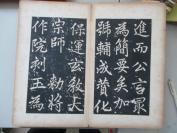 進而公言眾
為簡要矣加
號輔成贊化
保運玄教大
宗師勅將
作院刻玉為